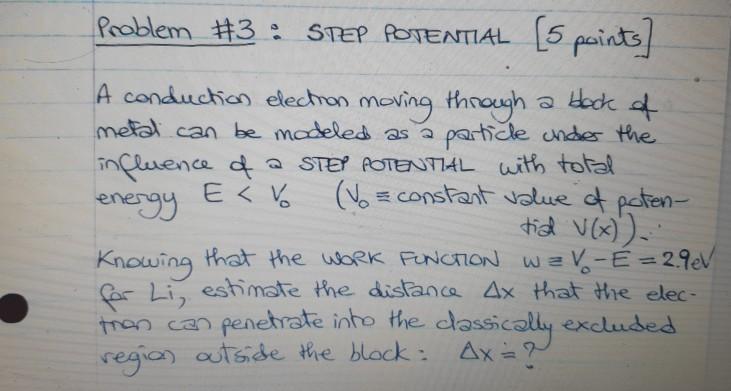 Problem #3 : STEP POTENTIAL [5 points]
A conduction electron moving through a block of
metal can be modeled as a particle under the
influence of a STEP POTENTIAL with total
energy E < V₀ (V₀ ≡ constant value of poten-
tial V(x)).
Knowing that the WORK FUNCTION w ≡ V₀ - E = 2.9eV
for Li, estimate the distance Δx that the elec-
tron can penetrate into the classically excluded
region outside the block : Δx = ?